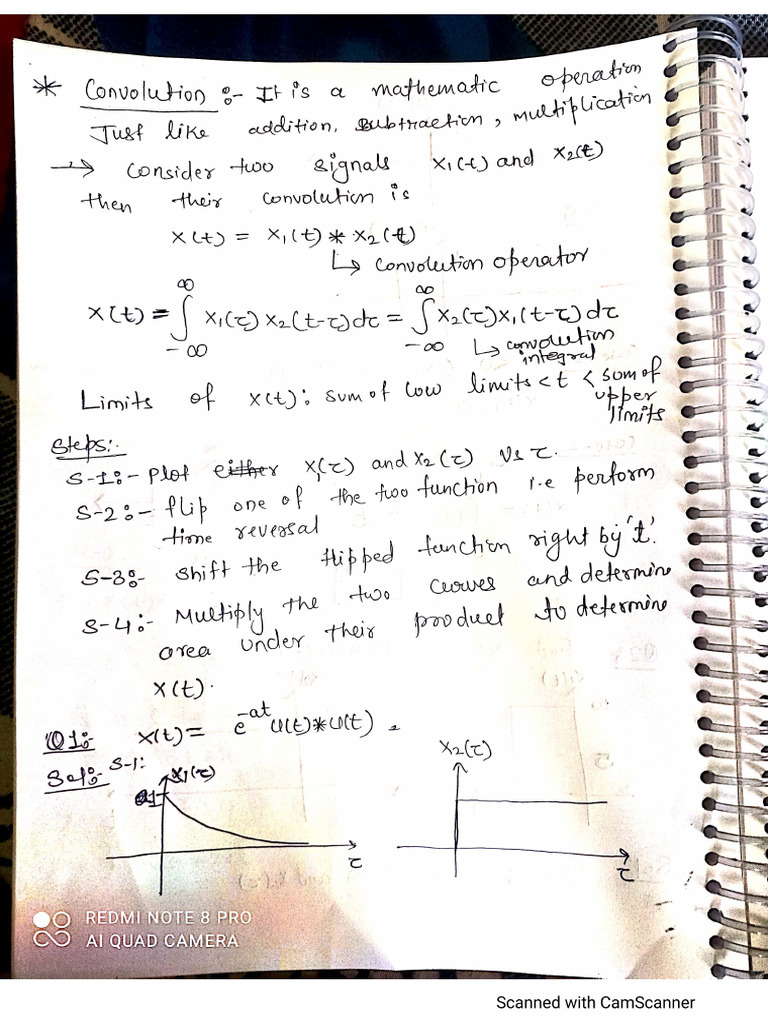 * Convolution :- It is a mathematic operation
Just like addition, subtraction, multiplication
→ consider two signals x1(t) and x2(t)
then their convolution is
x(t) = x1(t) * x2(t)
↳ convolution operator
x(t) = ∫_{-∞}^{∞} x1(τ) x2(t-τ)dτ = ∫_{-∞}^{∞} x2(τ)x1(t-τ)dτ
↳ convolution
integral
Limits of x(t): sum of low limits < t < sum of
upper
limits
Steps:.
S-1:- Plot either x1(τ) and x2(τ) vs τ.
S-2:- flip one of the two function i.e perform
time reversal
S-3:- Shift the flipped function right by 't'.
S-4:- Multiply the two curves and determine
area under their product to determine
x(t).
Q1:- x(t) = e^{-at}u(t)*u(t) .
Sol:- S-1:
x1(τ)
1
τ
x2(τ)
τ
REDMI NOTE 8 PRO
AI QUAD CAMERA
Scanned with CamScanner